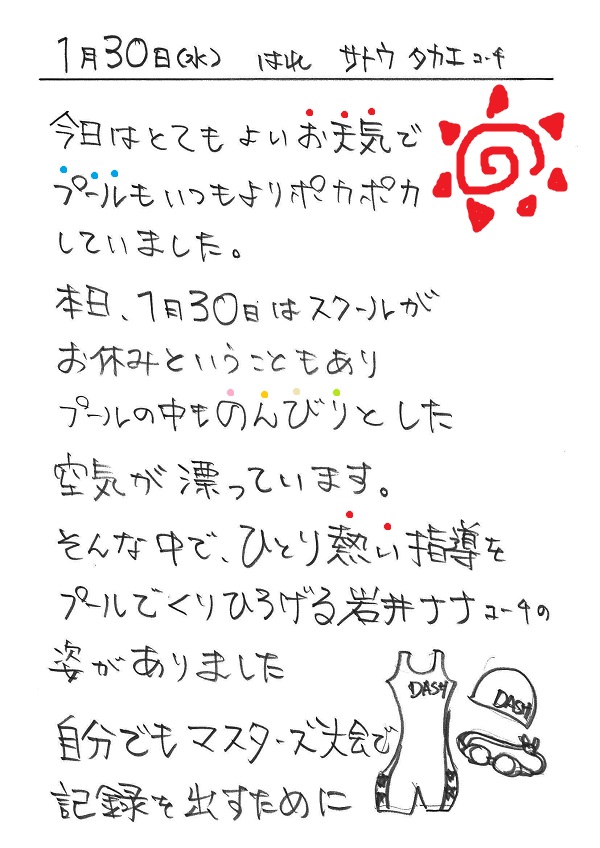 1月30日(水) はれ サトウ タカエ コーチ
今日はとてもよいお天気で
プールもいつもよりポカポカ
していました。
本日、1月30日はスクールが
お休みということもあり
プールの中ものんびりとした
空気が漂っています。
そんな中で、ひとり熱い指導を
プールでくりひろげる岩井ナナコーチの
姿がありました
DASH
DASH
自分でもマスターズ大会で
記録を出すために